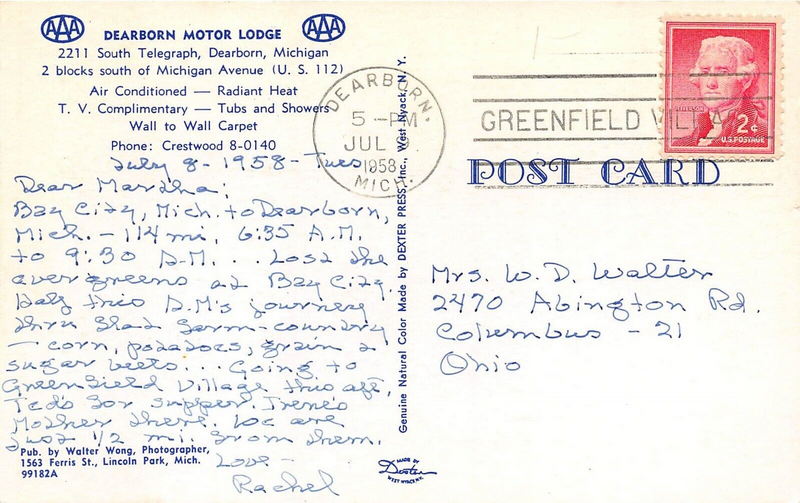 AAA DEARBORN MOTOR LODGE AAA
2211 South Telegraph, Dearborn, Michigan
2 blocks south of Michigan Avenue (U. S. 112)
Air Conditioned — Radiant Heat
T. V. Complimentary — Tubs and Showers
Wall to Wall Carpet
Phone: Crestwood 8-0140
July 8 - 1958 - Tues
Dear Martha:
Bay City, Mich. to Dearborn,
Mich. - 114 mi, 6:35 A.M.
to 9:30 A.M... Lost the
evergreens at Bay City.
Half this A.M's journey
thru flat farm-country
- corn, potatoes, grain &
sugar beets... Going to
Greenfield Village this aft,
Ted's for supper. Irene's
Mother there. We are
just 1/2 mi. from them.
Love -
Rachel
Pub. by Walter Wong, Photographer,
1563 Ferris St., Lincoln Park, Mich.
99182A
Genuine Natural Color Made by DEXTER PRESS, Inc., West Nyack, N. Y.
MADE BY
Dexter
WEST NYACK, N.Y.
DEARBORN,
5 - PM
JUL 9
1958
MICH.
GREENFIELD VILLA
2¢
U.S. POSTAGE
POST CARD
Mrs. W. D. Walter
2470 Abington Rd.
Columbus - 21
Ohio